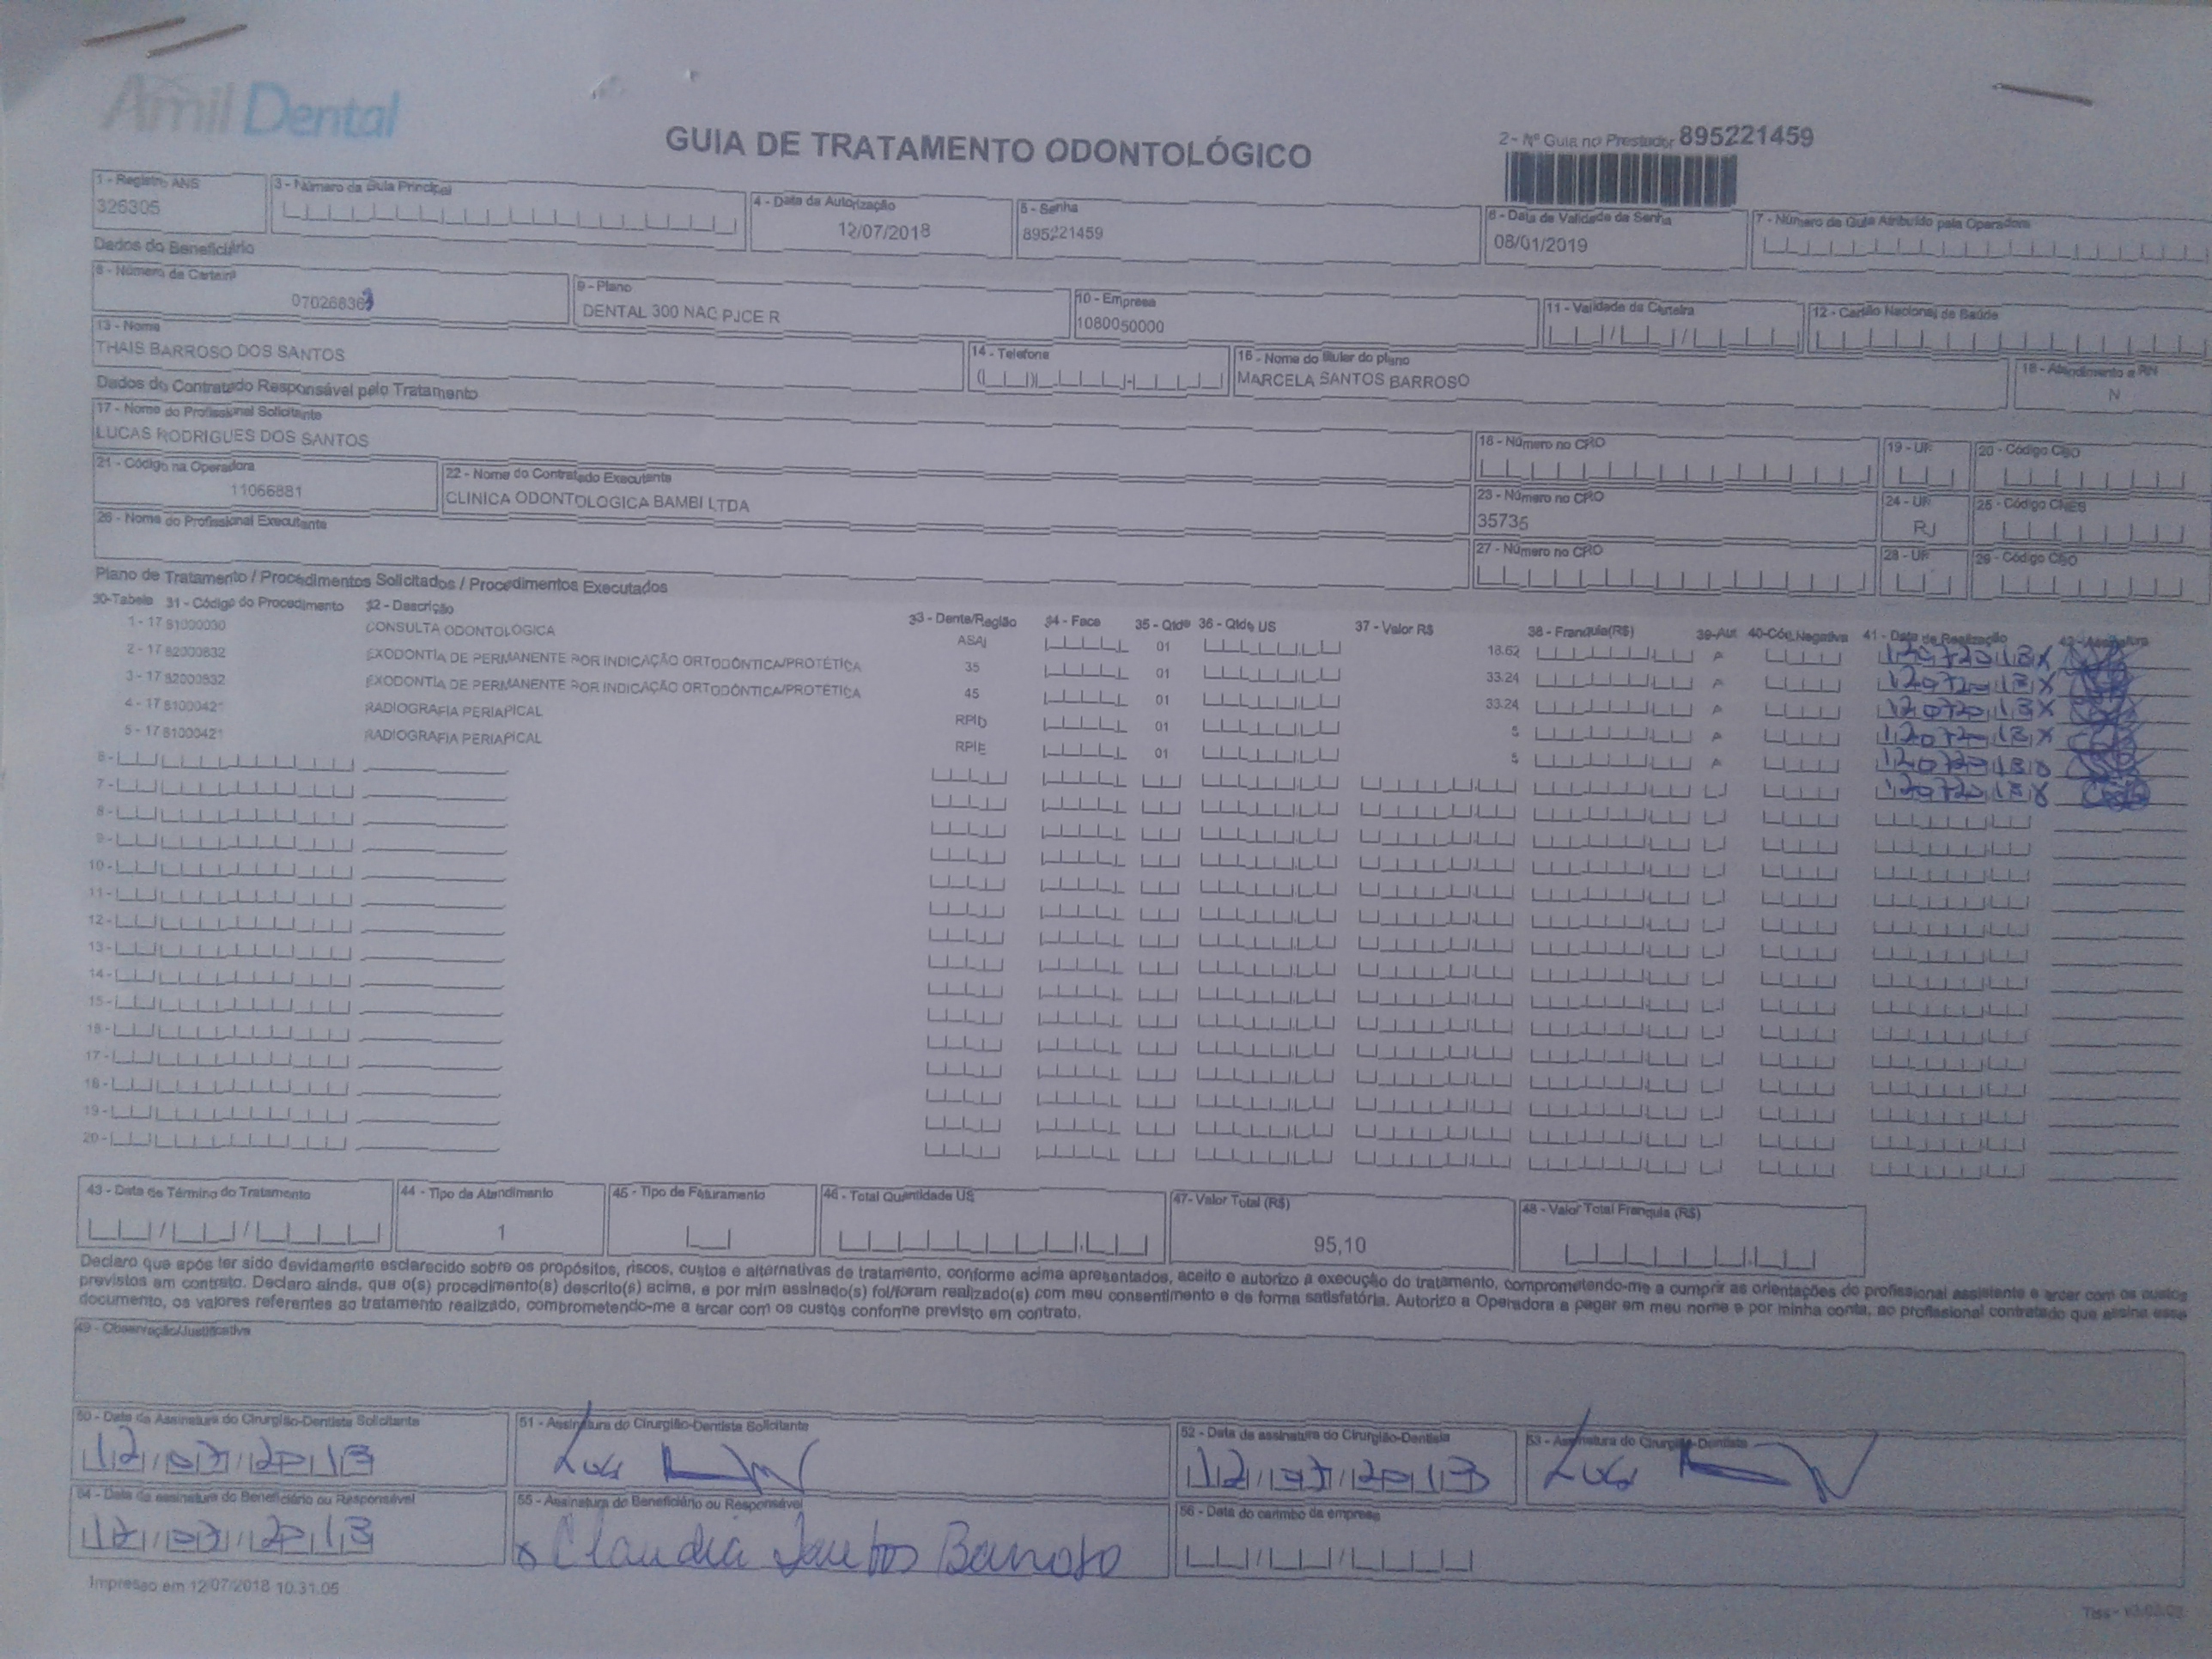 Amil Dental
GUIA DE TRATAMENTO ODONTOLÓGICO
2 - Nº Guia no Prestador 895221459
1 - Registro ANS
326305
3 - Número da Guia Principal
4 - Data da Autorização
12/07/2018
5 - Senha
895221459
6 - Data da Validade da Senha
08/01/2019
7 - Número da Guia Atribuído pela Operadora
Dados do Beneficiário
8 - Número da Carteira
07026836
9 - Plano
DENTAL 300 NAC PJCE R
10 - Empresa
1080050000
11 - Validade da Carteira
12 - Cartão Nacional de Saúde
13 - Nome
THAIS BARROSO DOS SANTOS
14 - Telefone
15 - Nome do titular do plano
MARCELA SANTOS BARROSO
16 - Atendimento a RN
N
Dados do Contratado Responsável pelo Tratamento
17 - Nome do Profissional Solicitante
LUCAS RODRIGUES DOS SANTOS
18 - Número no CRO
19 - UF
20 - Código CBO
21 - Código na Operadora
11066881
22 - Nome do Contratado Executante
CLINICA ODONTOLOGICA BAMBI LTDA
23 - Número no CRO
35735
24 - UF
RJ
25 - Código CNES
26 - Nome do Profissional Executante
27 - Número no CRO
28 - UF
29 - Código CBO
Plano de Tratamento / Procedimentos Solicitados / Procedimentos Executados
30-Tabela 31 - Código do Procedimento 32 - Descrição 33 - Dente/Região 34 - Face 35 - Qtde 36 - Qtde US 37 - Valor R$ 38 - Franquia(R$) 39-Aut 40-Cód. Negativa 41 - Data de Realização 42 - Assinatura
1 - 17 81000030 CONSULTA ODONTOLÓGICA ASAI 01 18.62 A
2 - 17 82000832 EXODONTIA DE PERMANENTE POR INDICAÇÃO ORTODÔNTICA/PROTÉTICA 35 01 33.24 A
3 - 17 82000832 EXODONTIA DE PERMANENTE POR INDICAÇÃO ORTODÔNTICA/PROTÉTICA 45 01 33.24 A
4 - 17 81000421 RADIOGRAFIA PERIAPICAL RPID 01 5 A
5 - 17 81000421 RADIOGRAFIA PERIAPICAL RPIE 01 5 A
6 -
7 -
8 -
9 -
10 -
11 -
12 -
13 -
14 -
15 -
16 -
17 -
18 -
19 -
20 -
43 - Data de Término do Tratamento
44 - Tipo de Atendimento
1
45 - Tipo de Faturamento
46 - Total Quantidade US
47- Valor Total (R$)
95,10
48 - Valor Total Franquia (R$)
Declaro que após ter sido devidamente esclarecido sobre os propósitos, riscos, custos e alternativas de tratamento, conforme acima apresentados, aceito e autorizo a execução do tratamento, comprometendo-me a cumprir as orientações do profissional assistente e arcar com os custos
previstos em contrato. Declaro ainda, que o(s) procedimento(s) descrito(s) acima, e por mim assinado(s) foi/foram realizado(s) com meu consentimento e de forma satisfatória. Autorizo a Operadora a pagar em meu nome e por minha conta, ao profissional contratado que assina esse
documento, os valores referentes ao tratamento realizado, comprometendo-me a arcar com os custos conforme previsto em contrato.
49 - Observação/Justificativa
50 - Data da Assinatura do Cirurgião-Dentista Solicitante
51 - Assinatura do Cirurgião-Dentista Solicitante
52 - Data da assinatura do Cirurgião-Dentista
53 - Assinatura do Cirurgião-Dentista
54 - Data da assinatura do Beneficiário ou Responsável
55 - Assinatura do Beneficiário ou Responsável
Claudia Santos Barroso
56 - Data do carimbo da empresa
Impresso em 12/07/2018 10.31.05